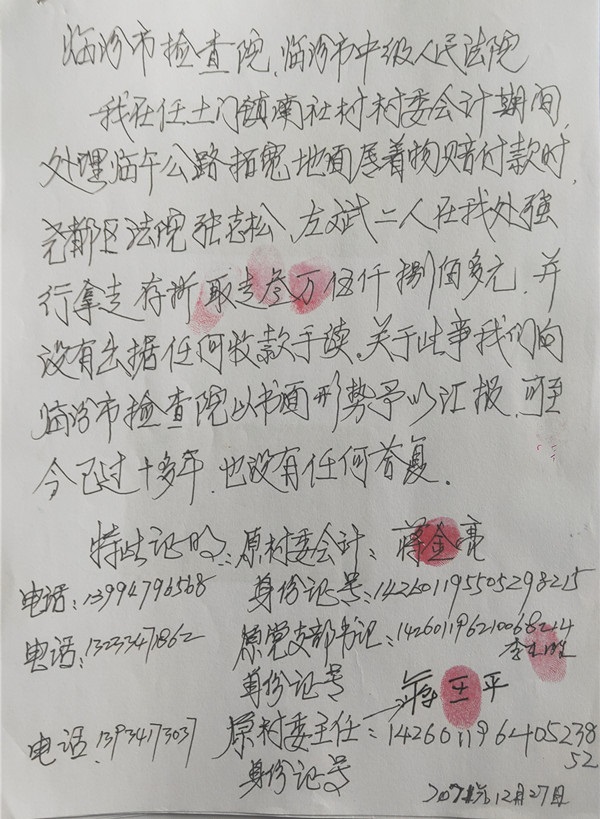 临汾市检查院、临汾市中级人民法院
我在任土门镇南社村村委会计期间,
处理临午公路拓宽地面居着物赔付款时,
尧都区法院张志松、左斌二人在我处强
行拿走存折取走叁万伍仟捌佰多元,并
没有出据任何收款手读.关于此事我们向
临汾市检查院以书面形势予以汇报,可至
今已过十多年.也没有任何答复.
特此证明: 原村委会计: 蒋金亮
电话:13994796568 身份证号:142601195505298215
电话:13233471862 原党支部书记:
身份证号
蒋王平
电话 原村委主任: 14260119640523852
身份证号
12月27日